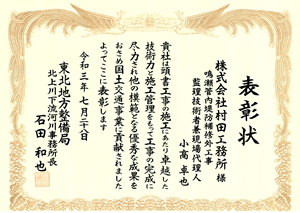 表彰状
株式会社村田工務所 様
鳴瀬管内堤防補修外工事
監理技術者兼現場代理人
小高 卓也
貴社は頭書工事の施工にあたり卓越した
技術力と施工管理をもって工事の完成に
尽力され他の模範となる優秀な成果を
おさめ国土交通事業に貢献されました
よってここに表彰します
令和三年七月二八日
東北地方整備局
北上川下流河川事務所長
石田 和也